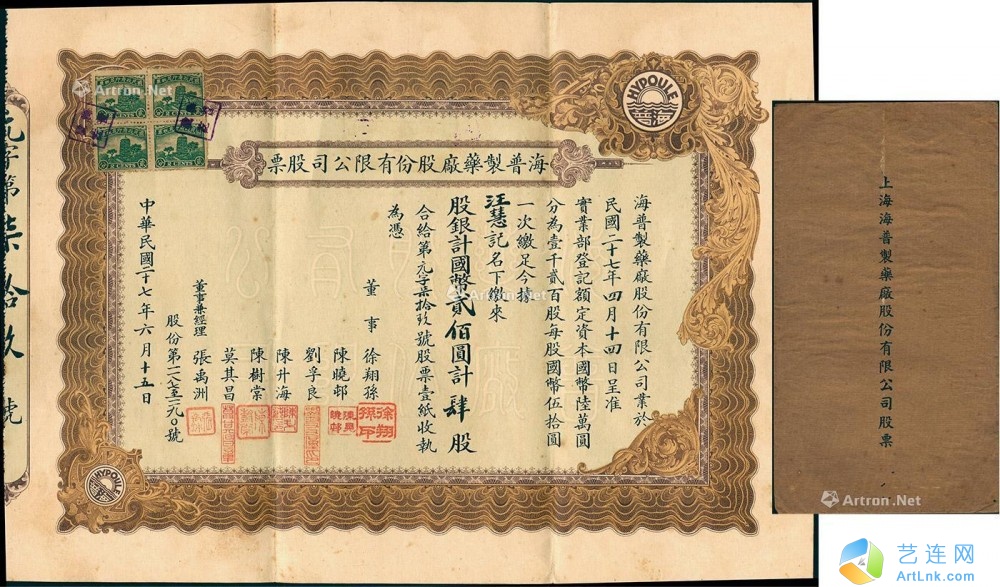 HYPOULE
海普
海普製藥廠股份有限公司股票
海普製藥廠股份有限公司業於
民國二十七年四月十四日呈准
實業部登記額定資本國幣陸萬圓
分為壹千貳百股每股國幣伍拾圓
一次繳足今據
汪慧記名下繳來
股銀計國幣貳佰圓計肆股
合給第元字柒拾玖號股票壹紙收執
為憑
董事 徐翔孫
陳曉邨
劉孚良
陳升海
陳樹棠
莫其昌
董事兼經理 張禹洲
股份第一一八七至一一九〇號
中華民國二十七年六月十五日
元字第柒拾玖號
HYPOULE
上海海普製藥廠股份有限公司股票
Artron.Net
Artron.Net
Artron.Net
艺连网
ArtLnk.com